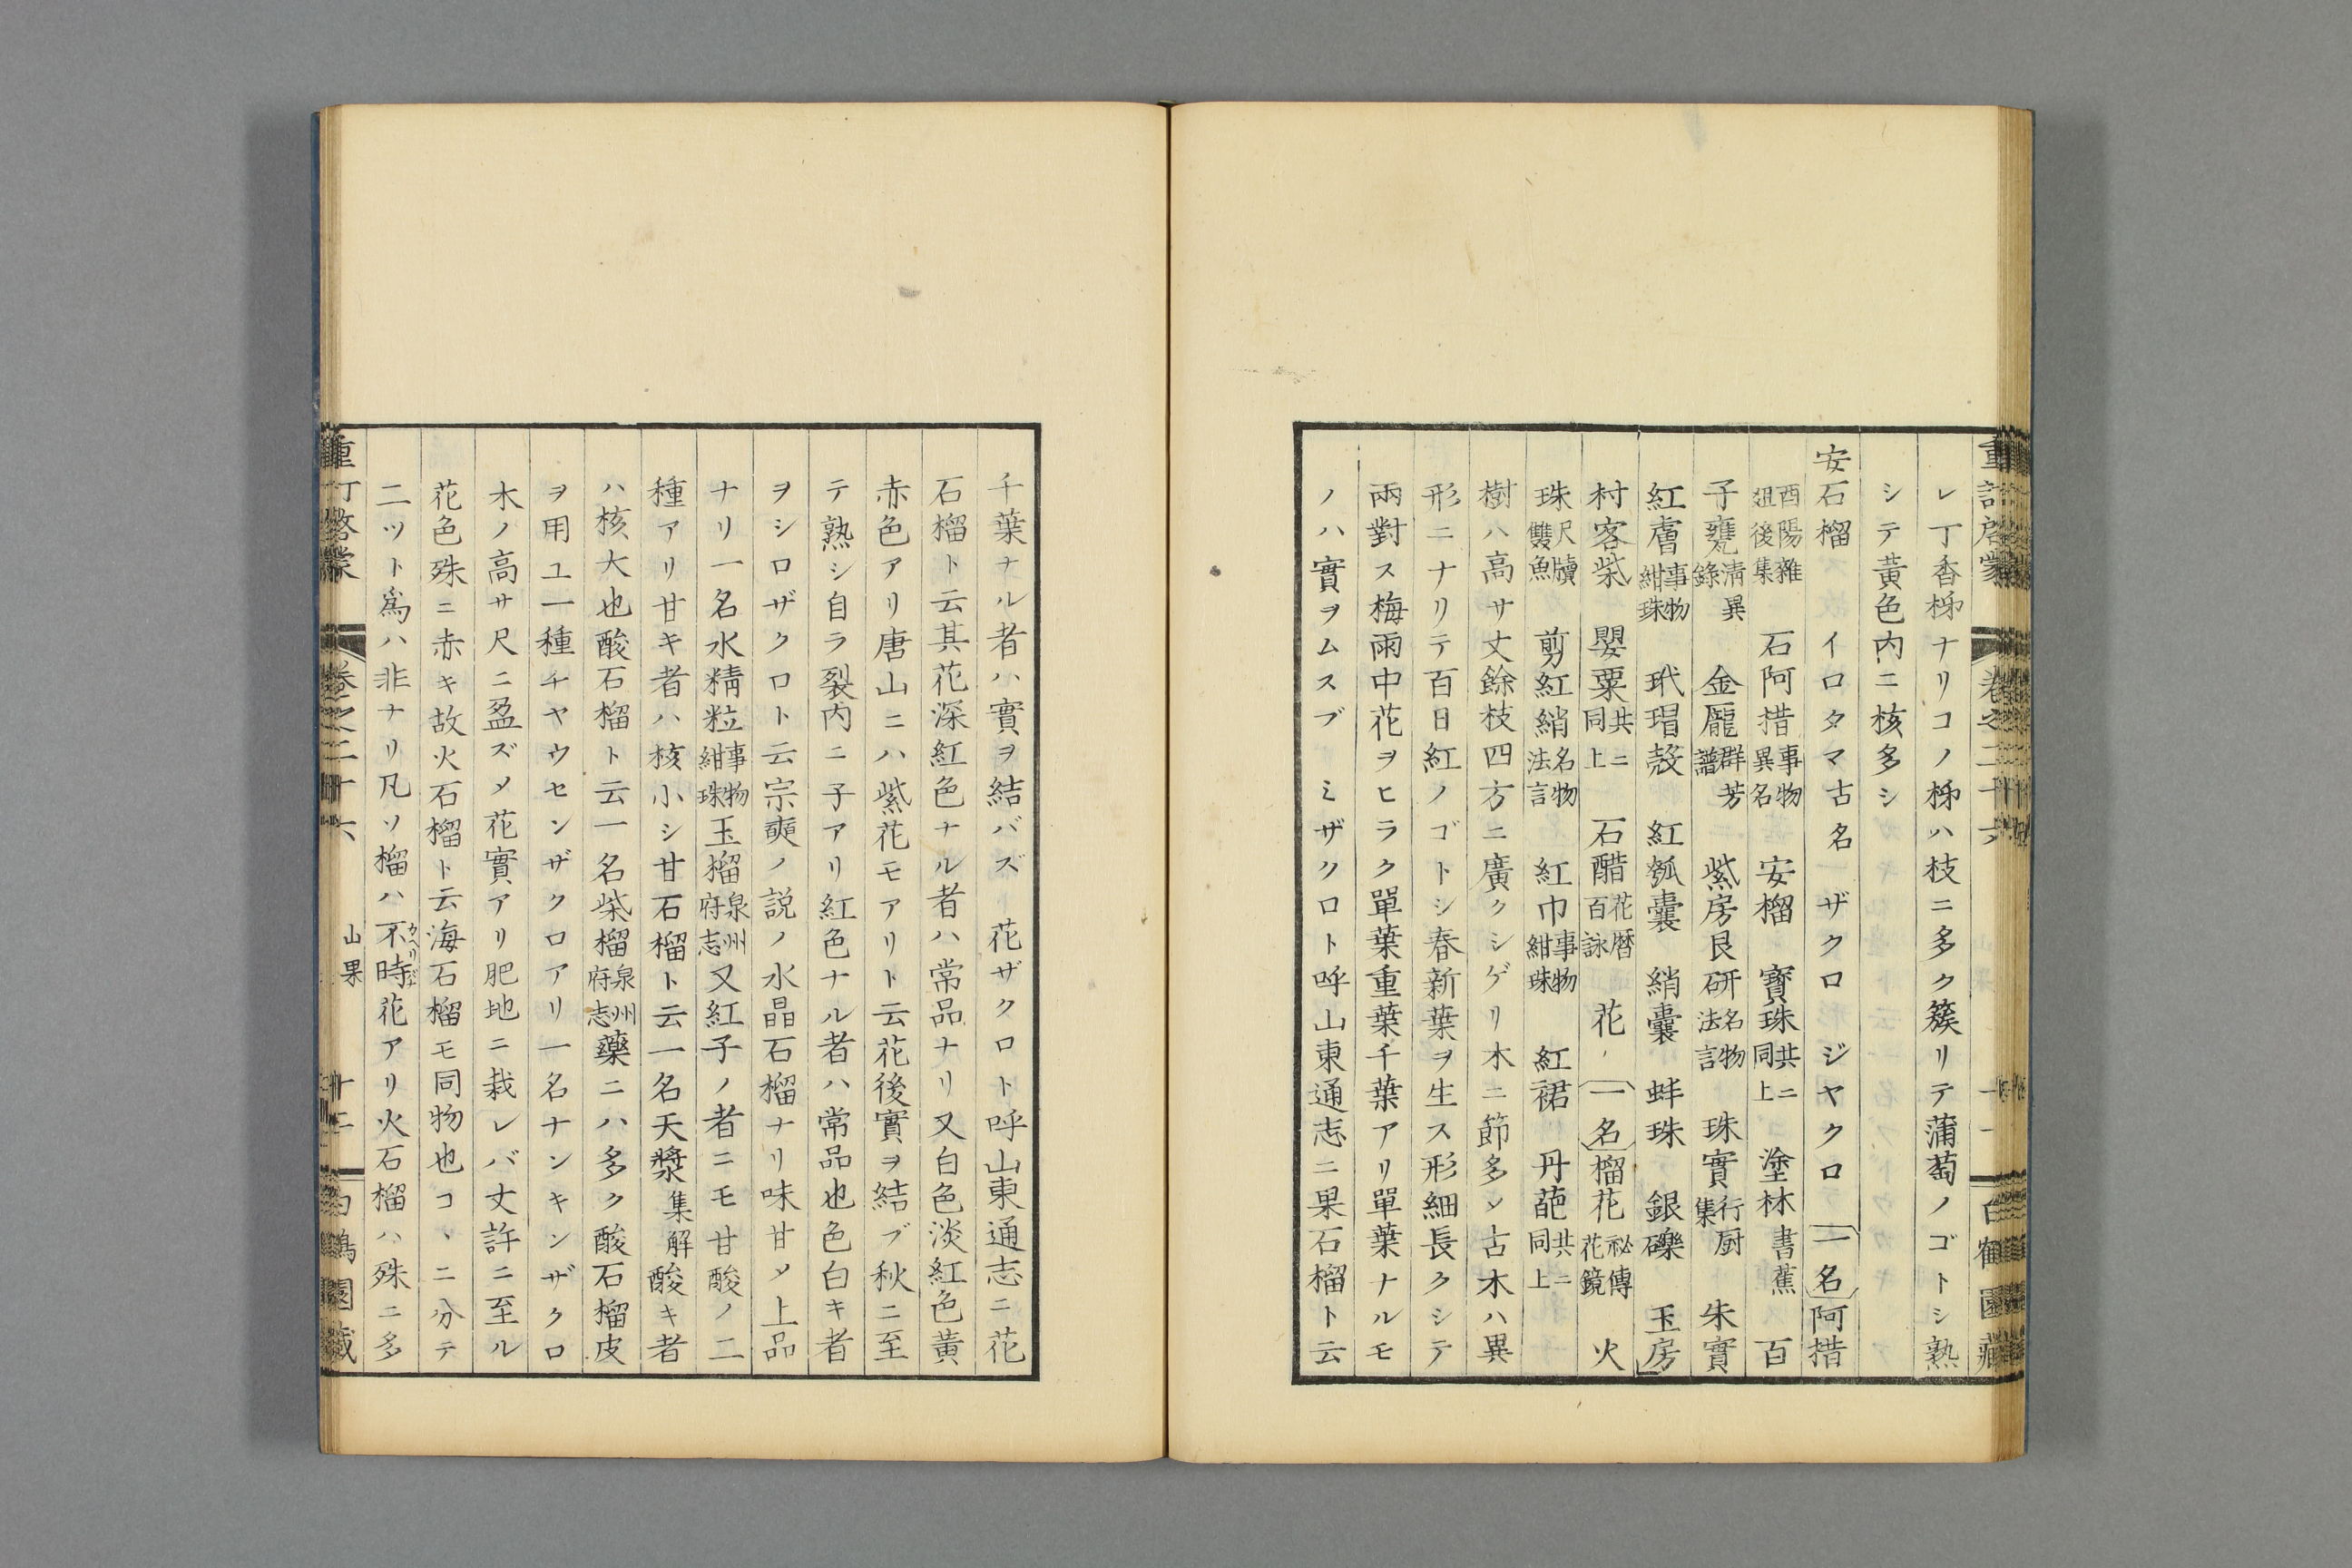 重訂啓蒙 卷之二十六 十一 白鶴園藏
レ丁香柹ナリコノ柹ハ枝ニ多ク簇リテ蒲萄ノゴトシ熟
シテ黃色内ニ核多シ
安石榴 イロタマ古名 ザクロ ジヤクロ 一名阿措
酉陽雜俎後集 石阿措事物異名 安榴 寶珠共ニ同上 塗林書蕉 百
子甕淸異錄 金龎群芳譜 紫房艮研名物法言 珠實行厨集 朱實
紅膚事物紺珠 玳瑁殼 紅瓠囊 綃囊 蚌珠 銀礫 玉房
村客柴 嬰粟共ニ同上 石醋花暦百詠 花 一名榴花祕傳花鏡 火
珠尺牘雙魚 剪紅綃名物法言 紅巾事物紺珠 紅裙 丹葩共ニ同上
樹ハ高サ丈餘枝四方ニ廣クシゲリ木ニ節多シ古木ハ異
形ニナリテ百日紅ノゴトシ春新葉ヲ生ス形細長クシテ
兩對ス梅雨中花ヲヒラク單葉重葉千葉アリ單葉ナルモ
ノハ實ヲムスブ ミザクロト呼山東通志ニ果石榴ト云
千葉ナル者ハ實ヲ結バズ 花ザクロト呼山東通志ニ花
石榴ト云其花深紅色ナル者ハ常品ナリ又白色淡紅色黃
赤色アリ唐山ニハ紫花モアリト云花後實ヲ結ブ秋ニ至
テ熟シ自ラ裂内ニ子アリ紅色ナル者ハ常品也色白キ者
ヲシロザクロト云宗奭ノ説ノ水晶石榴ナリ味甘〆上品
ナリ一名水精粒事物紺珠玉榴泉州府志又紅子ノ者ニモ甘酸ノ二
種アリ甘キ者ハ核小シ甘石榴ト云一名天漿集解酸キ者
ハ核大也酸石榴ト云一名柴榴泉州府志藥ニハ多ク酸石榴皮
ヲ用ユ一種チヤウセンザクロアリ一名ナンキンザクロ
木ノ高サ尺ニ盈ズ〆花實アリ肥地ニ栽レバ丈許ニ至ル
花色殊ニ赤キ故火石榴ト云海石榴モ同物也コヽニ分テ
二ツト爲ハ非ナリ凡ソ榴ハ不時花アリ火石榴ハ殊ニ多
重訂啓蒙 卷之二十六 山果 十二 白鶴園藏